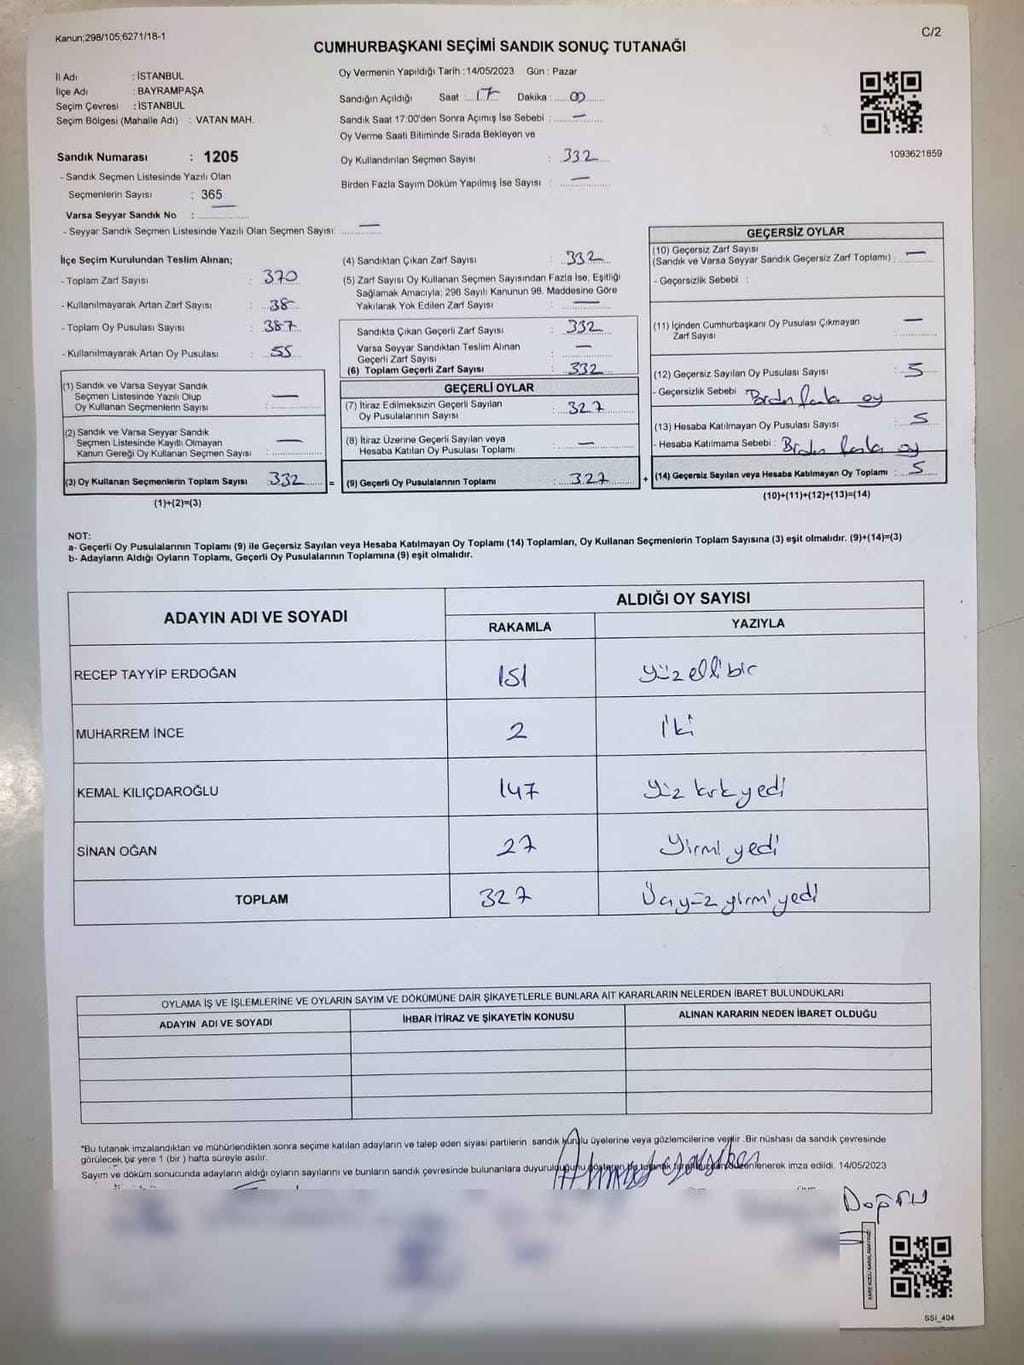 Kanun;298/105;6271/18-1
C/2
CUMHURBAŞKANI SEÇİMİ SANDIK SONUÇ TUTANAĞI
İl Adı : İSTANBUL
İlçe Adı : BAYRAMPAŞA
Seçim Çevresi : İSTANBUL
Seçim Bölgesi (Mahalle Adı) : VATAN MAH.
Sandık Numarası : 1205
- Sandık Seçmen Listesinde Yazılı Olan
Seçmenlerin Sayısı : 365
Varsa Seyyar Sandık No :
- Seyyar Sandık Seçmen Listesinde Yazılı Olan Seçmen Sayısı: —
Oy Vermenin Yapıldığı Tarih : 14/05/2023 Gün : Pazar
Sandığın Açıldığı Saat : 17 Dakika : 00
Sandık Saat 17:00'den Sonra Açımış İse Sebebi : —
Oy Verme Saati Bitiminde Sırada Bekleyen ve
Oy Kullandırılan Seçmen Sayısı : 332
Birden Fazla Sayım Döküm Yapılmış İse Sayısı : —
1093621859
İlçe Seçim Kurulundan Teslim Alınan;
- Toplam Zarf Sayısı : 370
- Kullanılmayarak Artan Zarf Sayısı : 38
- Toplam Oy Pusulası Sayısı : 387
- Kullanılmayarak Artan Oy Pusulası : 55
(1) Sandık ve Varsa Seyyar Sandık
Seçmen Listesinde Yazılı Olup
Oy Kullanan Seçmenlerin Sayısı : —
(2) Sandık ve Varsa Seyyar Sandık
Seçmen Listesinde Kayıtlı Olmayan
Kanun Gereği Oy Kullanan Seçmen Sayısı : —
(3) Oy Kullanan Seçmenlerin Toplam Sayısı 332 =
(1)+(2)=(3)
(4) Sandıktan Çıkan Zarf Sayısı : 332
(5) Zarf Sayısı Oy Kullanan Seçmen Sayısından Fazla İse, Eşitliği
Sağlamak Amacıyla; 298 Sayılı Kanunun 98. Maddesine Göre
Yakılarak Yok Edilen Zarf Sayısı : —
Sandıkta Çıkan Geçerli Zarf Sayısı : 332
Varsa Seyyar Sandıktan Teslim Alınan
Geçerli Zarf Sayısı : —
(6) Toplam Geçerli Zarf Sayısı : 332
GEÇERLİ OYLAR
(7) İtiraz Edilmeksizin Geçerli Sayılan
Oy Pusulalarının Sayısı : 327
(8) İtiraz Üzerine Geçerli Sayılan veya
Hesaba Katılan Oy Pusulası Toplamı : —
(9) Geçerli Oy Pusulalarının Toplamı : 327 +
GEÇERSİZ OYLAR
(10) Geçersiz Zarf Sayısı
(Sandık ve Varsa Seyyar Sandık Geçersiz Zarf Toplamı) : —
- Geçersizlik Sebebi :
(11) İçinden Cumhurbaşkanı Oy Pusulası Çıkmayan
Zarf Sayısı : —
(12) Geçersiz Sayılan Oy Pusulası Sayısı : 5
- Geçersizlik Sebebi : Birden fazla oy
(13) Hesaba Katılmayan Oy Pusulası Sayısı : 5
- Hesaba Katılmama Sebebi : Birden fazla oy
(14) Geçersiz Sayılan veya Hesaba Katılmayan Oy Toplamı : 5
(10)+(11)+(12)+(13)=(14)
NOT:
a- Geçerli Oy Pusulalarının Toplamı (9) ile Geçersiz Sayılan veya Hesaba Katılmayan Oy Toplamı (14) Toplamları, Oy Kullanan Seçmenlerin Toplam Sayısına (3) eşit olmalıdır. (9)+(14)=(3)
b- Adayların Aldığı Oyların Toplamı, Geçerli Oy Pusulalarının Toplamına (9) eşit olmalıdır.
ADAYIN ADI VE SOYADI
ALDIĞI OY SAYISI
RAKAMLA YAZIYLA
RECEP TAYYİP ERDOĞAN 151 Yüzellibir
MUHARREM İNCE 2 İki
KEMAL KILIÇDAROĞLU 147 Yüz kırkyedi
SİNAN OĞAN 27 Yirmi yedi
TOPLAM 327 Üçyüz yirmi yedi
OYLAMA İŞ VE İŞLEMLERİNE VE OYLARIN SAYIM VE DÖKÜMÜNE DAİR ŞİKAYETLERLE BUNLARA AİT KARARLARIN NELERDEN İBARET BULUNDUKLARI
ADAYIN ADI VE SOYADI İHBAR İTİRAZ VE ŞİKAYETİN KONUSU ALINAN KARARIN NEDEN İBARET OLDUĞU
*Bu tutanak imzalandıktan ve mühürlendikten sonra seçime katılan adayların ve talep eden siyasi partilerin sandık kurulu üyelerine veya gözlemcilerine verilir .Bir nüshası da sandık çevresinde
görülecek bir yere 1 (bir ) hafta süreyle asılır.
Sayım ve döküm sonucunda adayların aldığı oyların sayılarını ve bunların sandık çevresinde bulunanlara duyurulduğunu gösteren bu tutanak tarafımızdan düzenlenerek imza edildi. 14/05/2023
Doğru
SSI_404